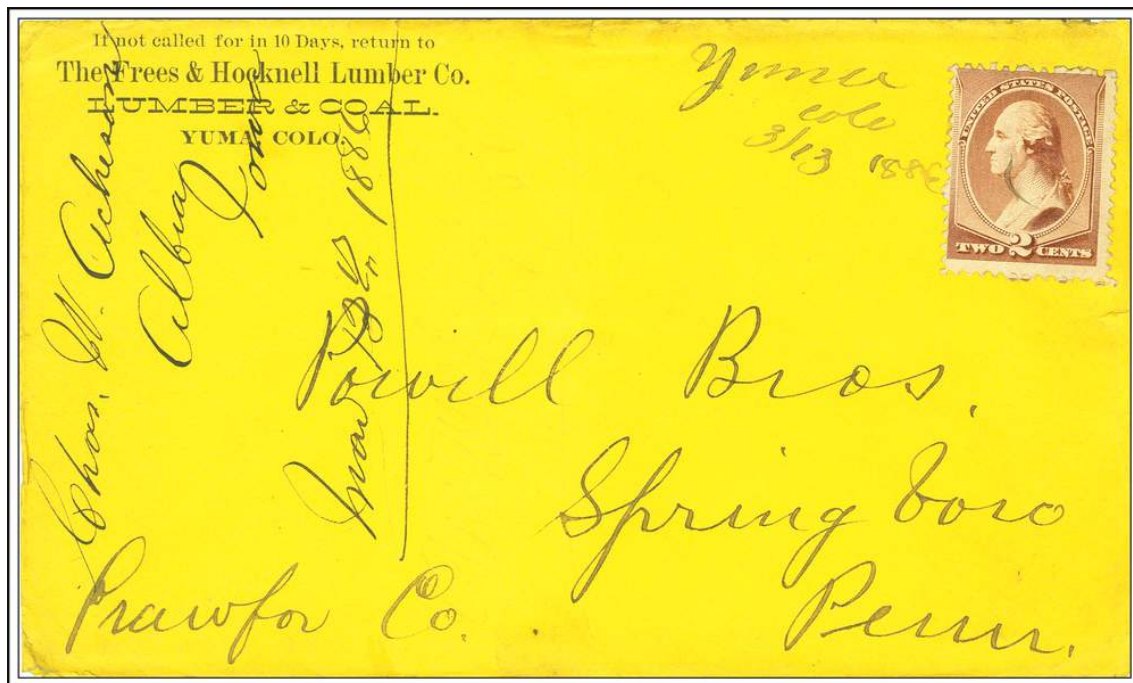 If not called for in 10 Days, return to
The Frees & Hocknell Lumber Co.
LUMBER & COAL.
YUMA, COLO.
Yuma
Colo
3/13 1886
UNITED STATES POSTAGE
TWO 2 CENTS
Chas. W. Acheson
Albia
Iowa
Mar 13th 1886
Powill Bros.
Springboro
Crawfor Co.
Penn.